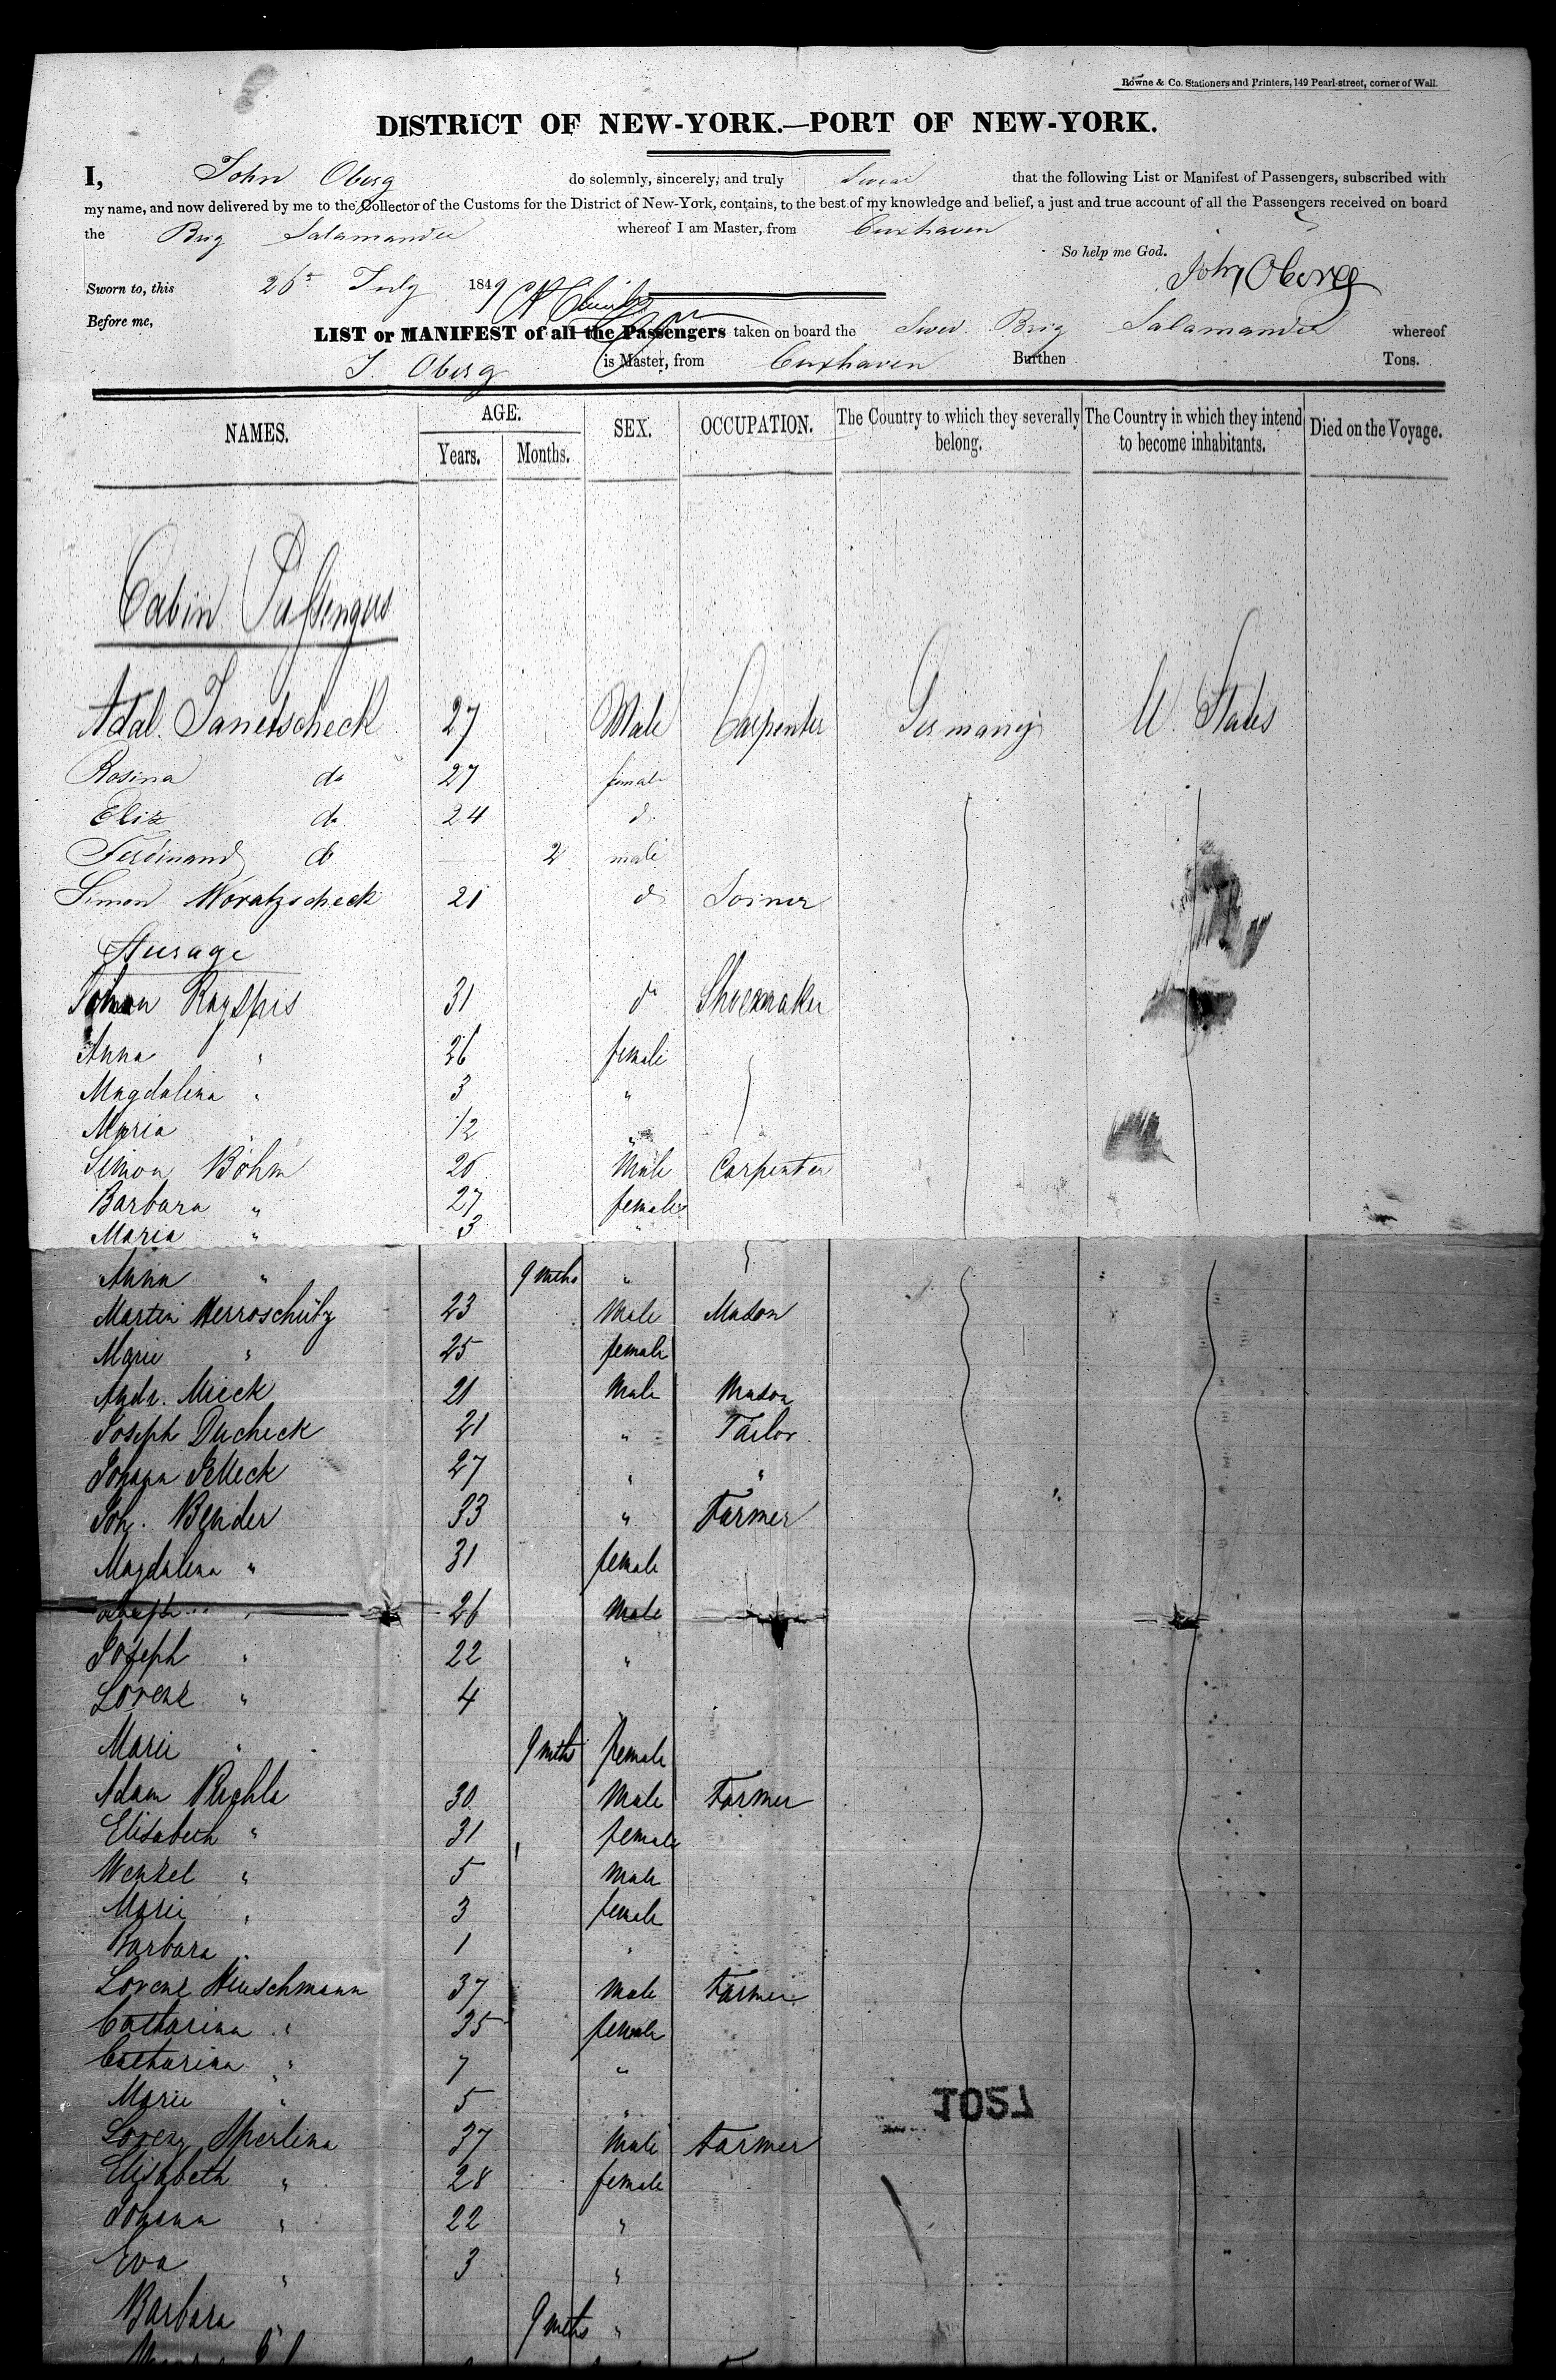 Bowne & Co. Stationers and Printers, 149 Pearl-street, corner of Wall.
DISTRICT OF NEW-YORK.—PORT OF NEW-YORK.
I, John Oberg do solemnly, sincerely, and truly swear that the following List or Manifest of Passengers, subscribed with
my name, and now delivered by me to the Collector of the Customs for the District of New-York, contains, to the best of my knowledge and belief, a just and true account of all the Passengers received on board
the Brig Salamander whereof I am Master, from Cuxhaven
So help me God.
John Oberg
Sworn to, this 26 July 1849
Before me,
LIST or MANIFEST of all the Passengers taken on board the Swed. Brig Salamander whereof
J. Oberg is Master, from Cuxhaven Burthen Tons.
NAMES. AGE. Years. Months. SEX. OCCUPATION. The Country to which they severally belong. The Country in which they intend to become inhabitants. Died on the Voyage.
Cabin Passengers
Adal. Janetscheck 27 Male Carpenter Germany U. States
Rosina do 27 female
Eliz do 24 do
Ferdinand do — 2 male
Simon Woratzscheck 21 do Joiner
Steerage
Johann 31 do Shoemaker
Anna " 26 female
Magdalina " 3 "
Maria " 1/2 "
Simon Böhm 26 Male Carpenter
Barbara " 27 female
Maria " 3
Anna " 9 mths "
Martin Herroschütz 23 Male Mason
Marie " 25 female
Andr. Mieck 21 Male Mason
Joseph Ducheck 21 " Tailor
Johann 27 " "
Joh. Bender 33 " Farmer
Magdalina " 31 female
" 26 Male
Joseph " 22 "
Lorenz " 4 "
Marie " 9 mths female
Adam 30 Male Farmer
Elisabeth " 31 female
Wenzel " 5 Male
Marie " 3 female
Barbara " 1 "
Lorenz Heuschmann 37 Male Farmer
Catharina " 35 female
Catharina " 7 "
Marie " 5 "
Lorenz Sperlina 37 Male Farmer
Elisabeth " 28 female
Johann " 22 "
Eva " 3 "
Barbara " 9 mths "
1057